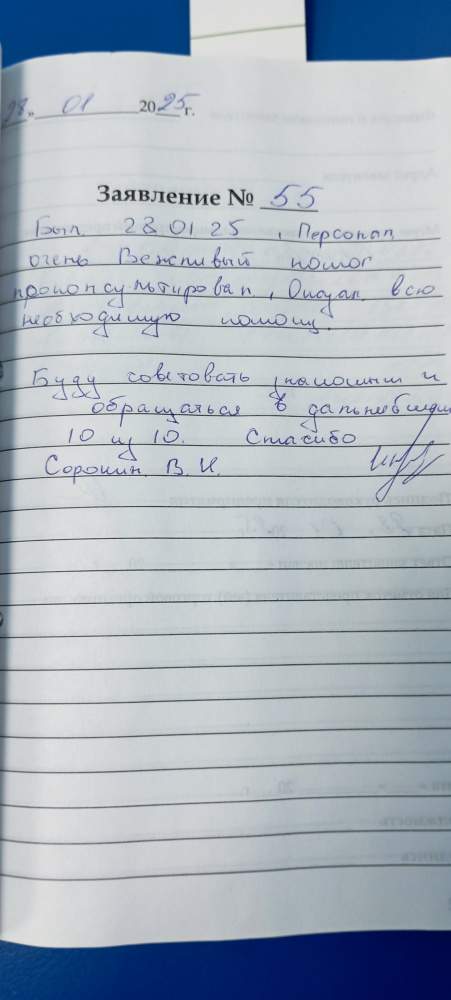 28 » 01 2025 г.
Заявление № 55
Был 28 01 25, Персонал
очень Вежливый помог
проконсультировал, Оказал всю
необходимую помощь.
Буду советовать знакомым и
обращаться в дальнейшем
10 из 10. Спасибо
Сорокин. В. И.